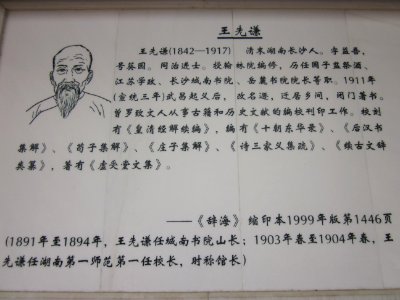 王先谦
王先谦(1842—1917) 清末湖南长沙人。字益吾，
号葵园。同治进士。授翰林院编修，历任国子监祭酒、
江苏学政、长沙城南书院、岳麓书院院长等职。1911年
(宣统三年)武昌起义后，改名遯，迁居乡间，闭门著书。
曾罗致文人从事古籍和历史文献的编校刊印工作。校刻
有《皇清经解续编》，编有《十朝东华录》、《后汉书
集解》、《荀子集解》、《庄子集解》、《诗三家义集疏》、《续古文辞
类纂》，著有《虚受堂文集》。
——《辞海》缩印本1999年版第1446页
(1891年至1894年，王先谦任城南书院山长；1903年春至1904年春，王
先谦任湖南第一师范第一任校长，时称馆长)